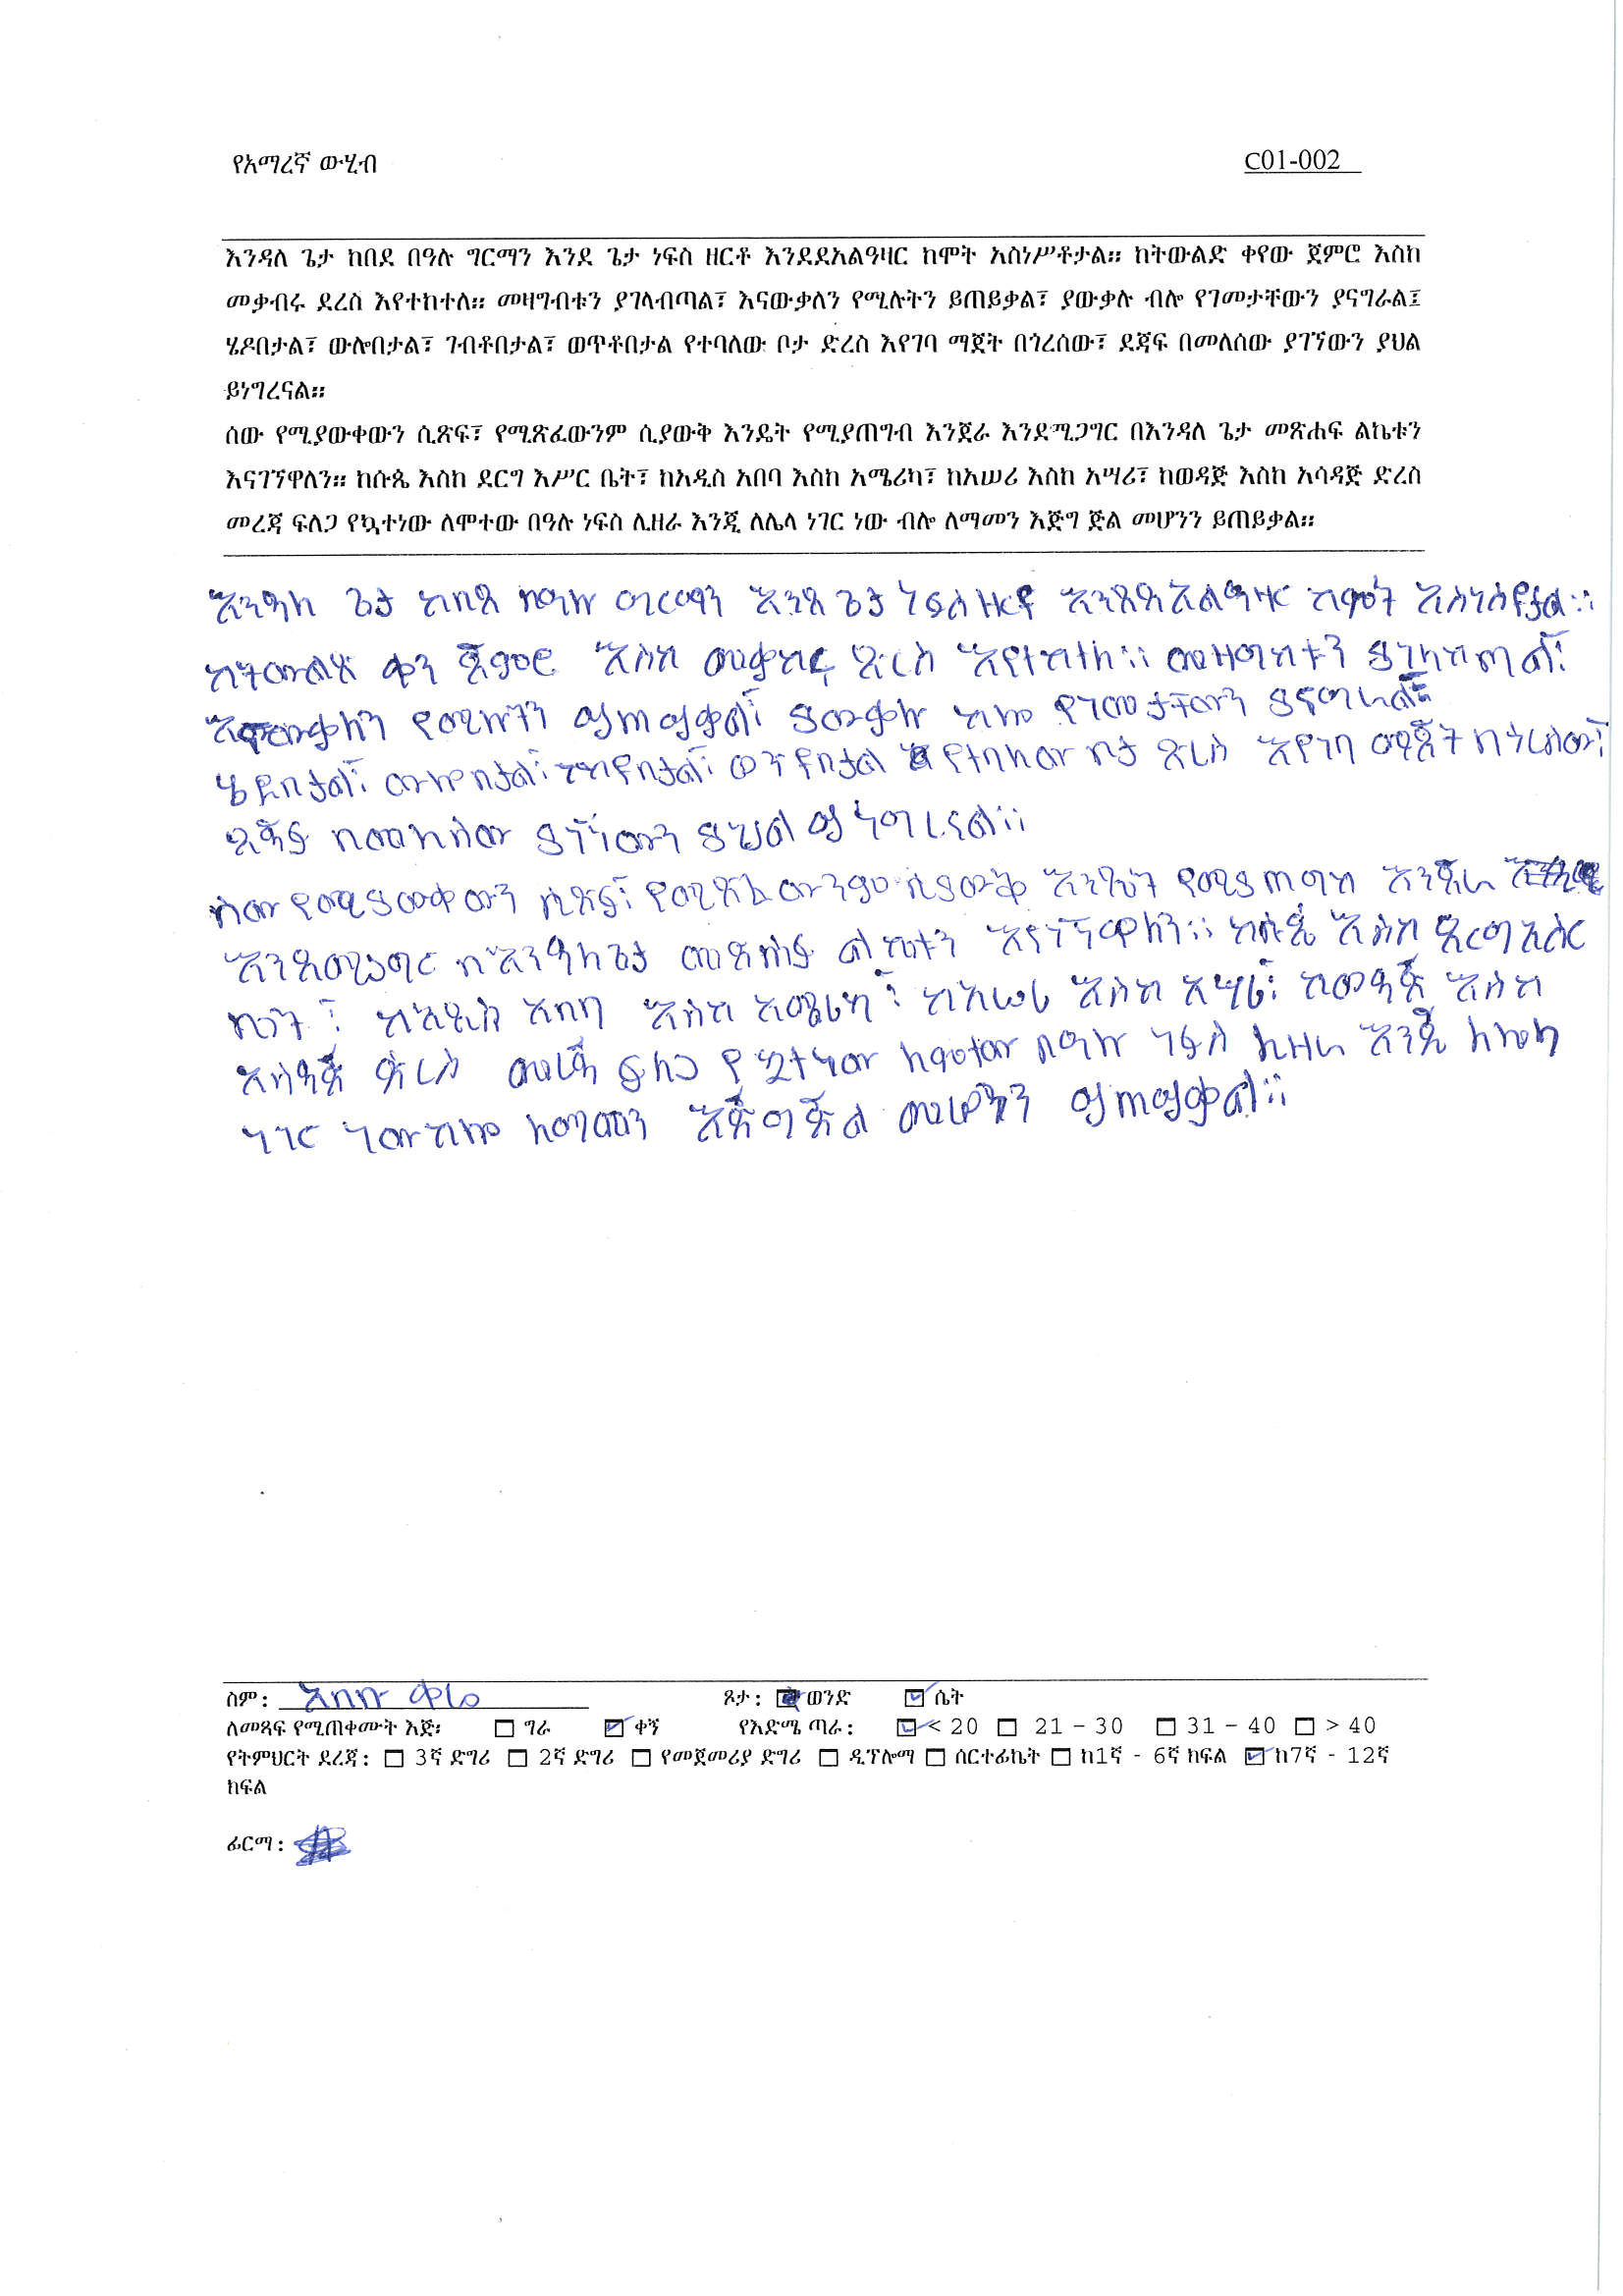 የአማረኛ ውሂብ C01-002
እንዳለ ጌታ ከበደ በዓሉ ግርማን እንደ ጌታ ነፍስ ዘርቶ እንደደአልዓዛር ከሞት አስነሥቶታል። ከትውልድ ቀየው ጀምሮ እስከ
መቃብሩ ደረስ እየተከተለ። መዛግብቱን ያገላብጣል፣ እናውቃለን የሚሉትን ይጠይቃል፣ ያውቃሉ ብሎ የገመታቸውን ያናግራል፤
ሄዶበታል፣ ውሎበታል፣ ገብቶበታል፣ ወጥቶበታል የተባለው ቦታ ድረስ እየገባ ማጀት በጎረሰው፣ ደጃፍ በመለሰው ያገኘውን ያህል
ይነግረናል።
ሰው የሚያውቀውን ሲጽፍ፣ የሚጽፈውንም ሲያውቅ እንዴት የሚያጠግብ እንጀራ እንደሚጋግር በእንዳለ ጌታ መጽሐፍ ልኬቱን
እናገኘዋለን። ከሱጴ እስከ ደርግ እሥር ቤት፣ ከአዲስ አበባ እስከ አሜሪካ፣ ከአሠሪ እስከ አሣሪ፣ ከወዳጅ እስከ አሳዳጅ ድረስ
መረጃ ፍለጋ የኳተነው ለሞተው በዓሉ ነፍስ ሊዘራ እንጂ ለሌላ ነገር ነው ብሎ ለማመን እጅግ ጅል መሆንን ይጠይቃል።
እንዳለ ጌታ ከበደ በዓሉ ግርማን እንደ ጌታ ነፍስ ዘርቶ እንደደአልዓዛር ከሞት አስነስቶታል።
ከትውልድ ቀን ጀምሮ እስከ መቃብሩ ድረስ እየተከተለ። መዛግብቱን ያገላብጣል፣
እናውቃለን የሚሉትን ይጠይቃል፣ ያውቃሉ ብሎ የገመታቸውን ያናግራል፤
ሄዶበታል፣ ውሎበታል፣ ገብቶበታል፣ ወጥቶበታል የተባለው ቦታ ድረስ እየገባ ማጀት በጎረሰው፣
ደጃፍ በመለሰው ያገኘውን ያህል ይነግረናል።
ሰው የሚያውቀውን ሲጽፍ፣ የሚጽፈውንም ሲያውቅ እንዴት የሚያጠግብ እንጀራ
እንደሚጋግር በእንዳለ ጌታ መጽሐፍ ልኬቱን እናገኘዋለን። ከሱጴ እስከ ደርግ እስር
ቤት፣ ከአዲስ አበባ እስከ አሜሪካ፣ ከአሠሪ እስከ አሣሪ፣ ከወዳጅ እስከ
አሳዳጅ ድረስ መረጃ ፍለጋ የኳተነው ለሞተው በዓሉ ነፍስ ሊዘራ እንጂ ለሌላ
ነገር ነው ብሎ ለማመን እጅግ ጅል መሆንን ይጠይቃል።
ስም: አበቡ ጾታ: ወንድ ሴት
ለመጻፍ የሚጠቀሙት እጅ፡ ግራ ቀኝ የእድሜ ጣራ: < 20 21 – 30 31 – 40 > 40
የትምህርት ደረጃ: 3ኛ ድግሪ 2ኛ ድግሪ የመጀመሪያ ድግሪ ዲፕሎማ ሰርተፊኬት ከ1ኛ - 6ኛ ክፍል ከ7ኛ - 12ኛ
ክፍል
ፊርማ: